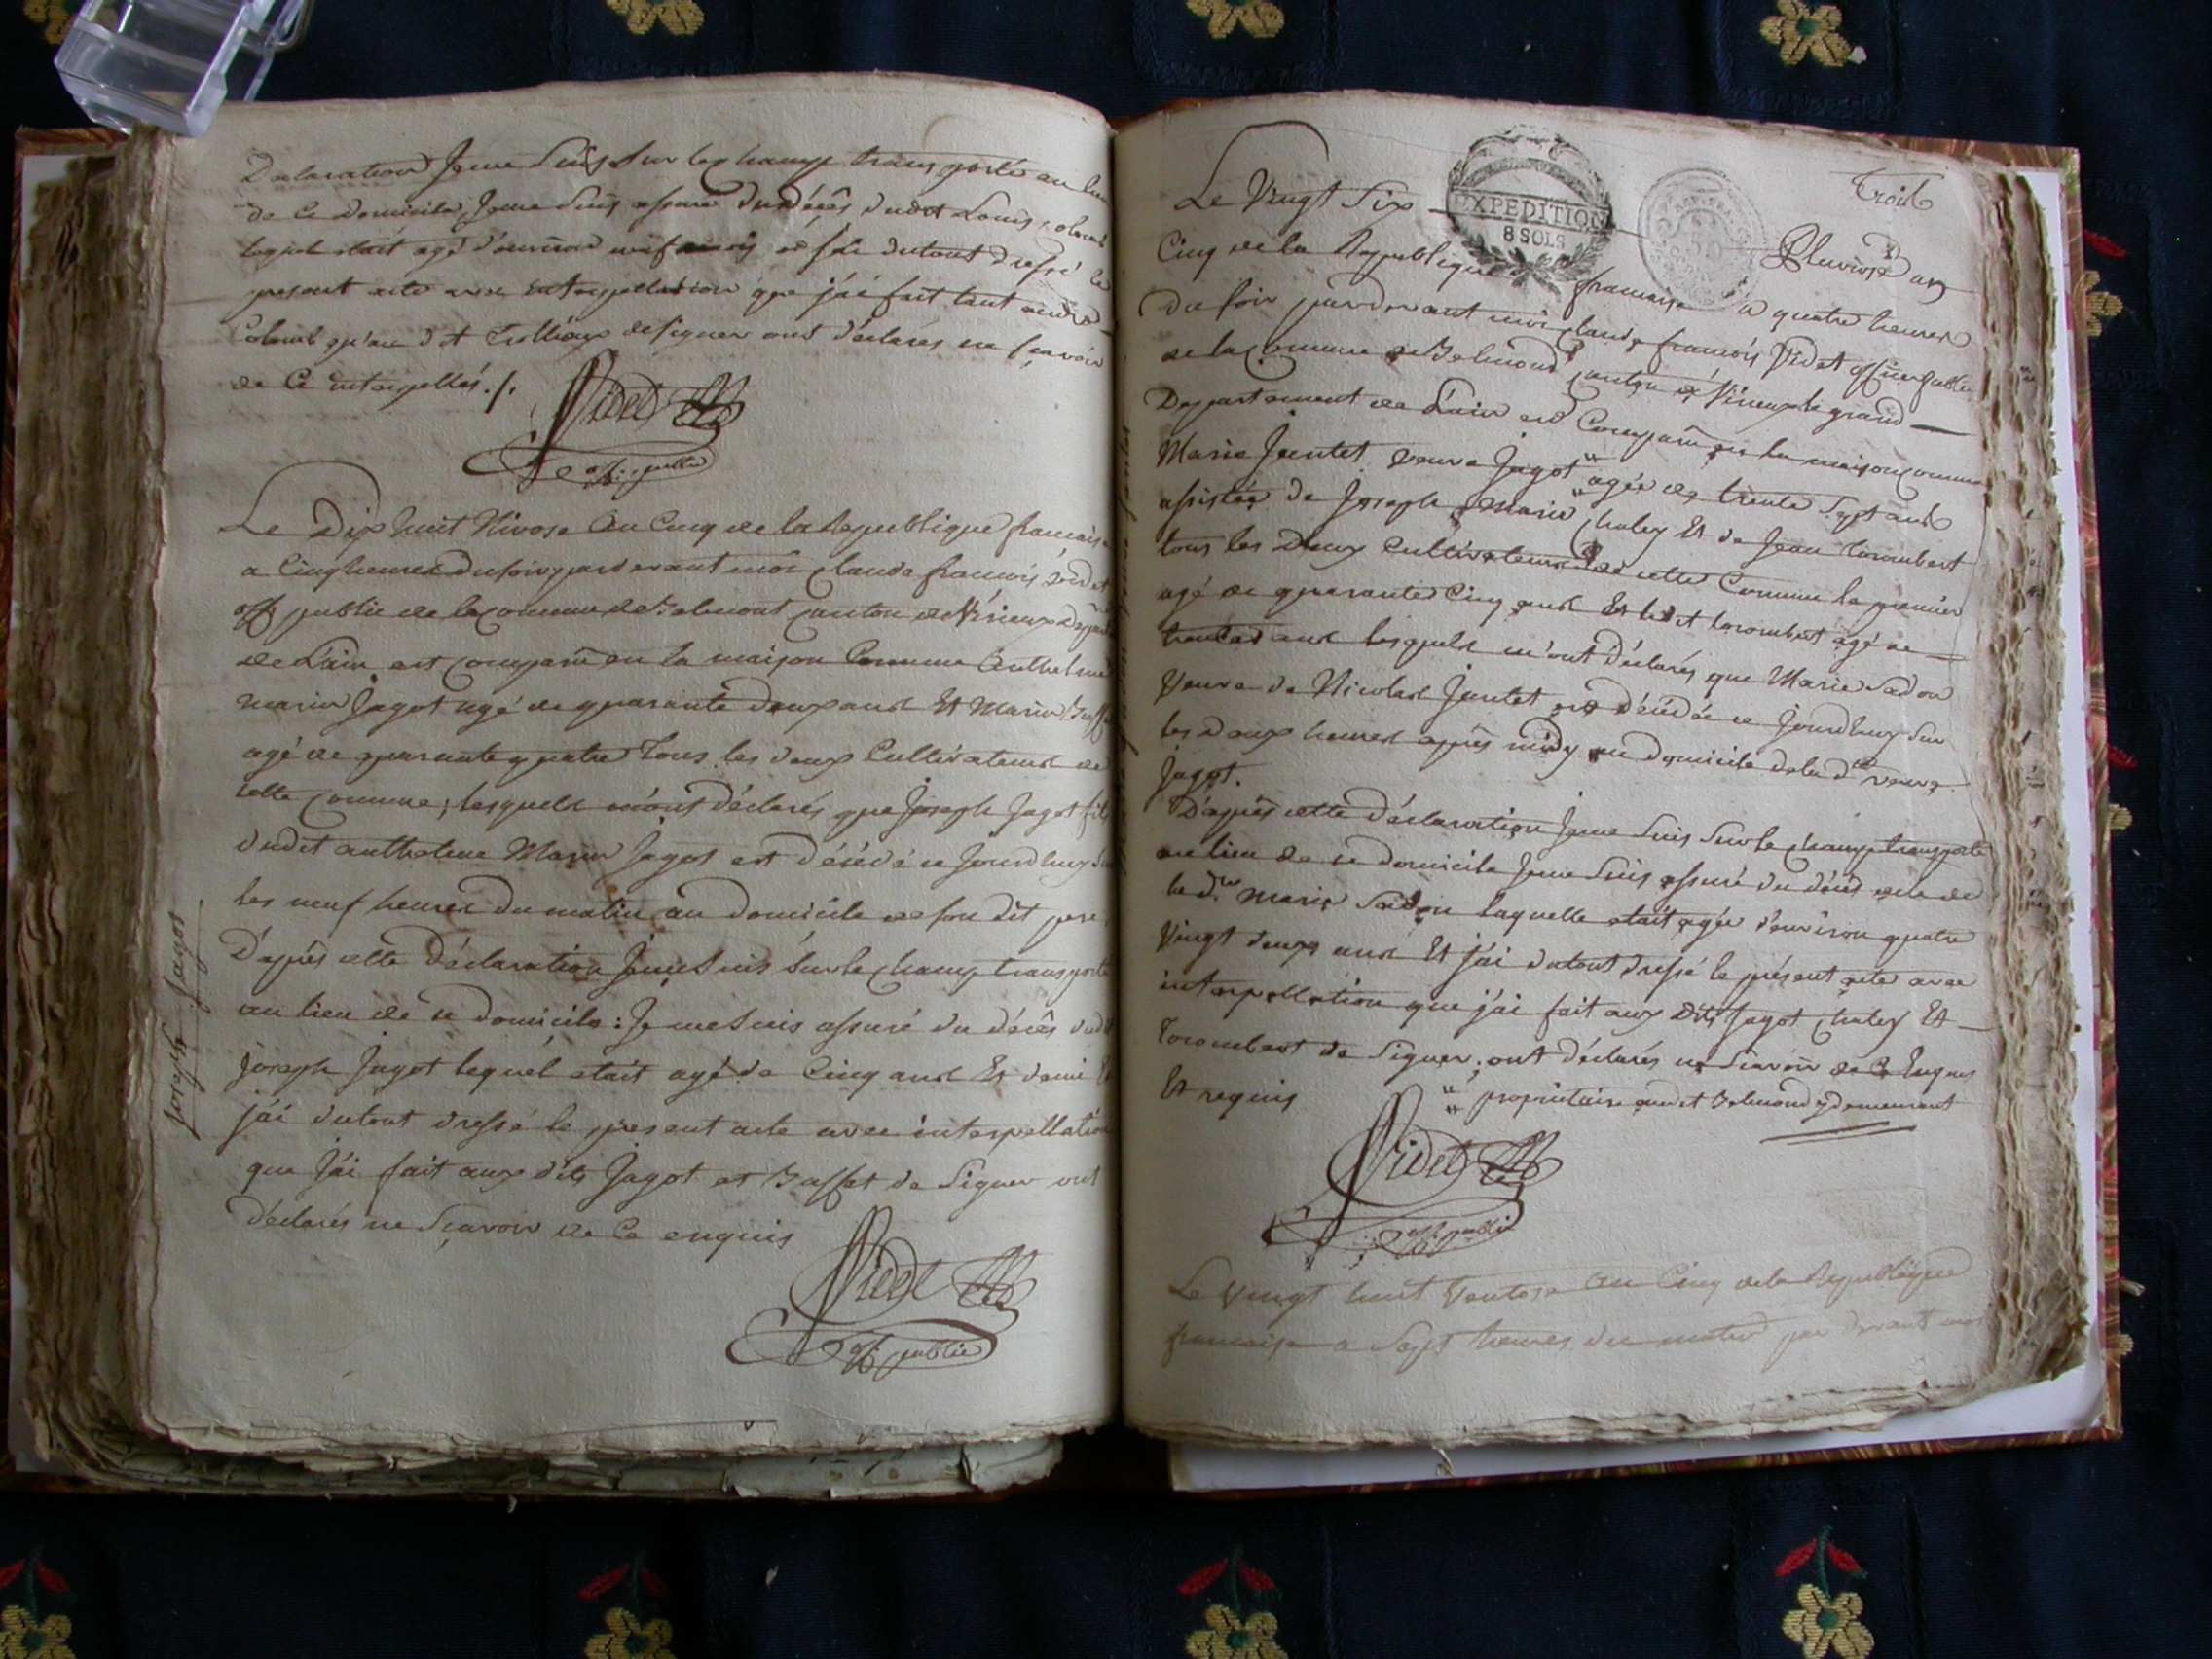 Declaration Je me suis sur le champ transporté au lieu
de ce domicile, Je me suis assuré du décès dudit Louis Colomb
lequel était agé d'environ neuf mois et j'ai du tout dressé le
present acte avec interpellation que j'ai fait tant audit
Colomb qu'au dit Trolliaux de signer ont déclarés ne sçavoir
de ce interpellés ./.
Videt
off. public
Le Dix huit Nivose an Cinq de la Republique francaise
a Cinq heures du soir, pardevant moi Claude francois Videt
off. public de la Commune de Belmont Canton de Virieux Depart
de L'ain est comparu en la maison Commune Anthelme
marin Jagot agé de quarante deux ans Et Marin Buffet
agé de quarante quatre Tous les deux Cultivateurs de
cette Comune; lesquels m'ont déclarés que Joseph Jagot fils
dudit anthelme Marin Jagot est décédé ce Jourdhuy sur
les neuf heures du matin au domicile de son dit pere
D'après cette Déclaration Je me suis sur le champ transporté
au lieu de ce domicile: Je me suis assuré du décès dudit
Joseph Jagot lequel etait agé de Cinq ans Et demi Et
j'ai du tout dressé le present acte avec interpellation
que j'ai fait aux dits Jagot et Buffet de Signer ont
déclarés ne Sçavoir de Ce enquis
Videt
off. public
Joseph Jagot
Troib
EXPEDITION
8 SOLS
Le Vingt Six Pluviose an
Cinq de la Republique francaise a quatre heures
du soir pardevant moi Claude francois Videt officier public
de la Commune de Belmond Canton de Virieux le grand
Departement de L'ain est Comparu en la maison Commune
Marie Juntet veuve Jagot " agée de trente Sept ans
assistée de Joseph Marie Chaley Et de Jean Torombert
tous les deux Cultivateurs de cette Commune le premier
agé de quarante Cinq ans Et ledit Torombert agé de
trente ans lesquels m'ont déclarés que Marie Sadon
Veuve de Nicolas Juntet est décédée ce jourdhuy sur
les deux heures après midy au domicile de la dte veuve
Jagot.
D'après cette déclaration Je me suis sur le champ transporté
au lieu de ce domicile Je me suis assuré du décès de
la d.te Marie Sadon laquelle etait agée d'environ quatre
Vingt deux ans Et j'ai du tout dressé le présent acte avec
interpellation que j'ai fait aux Dits Jagot Chaley Et
Torombert de Signer; ont déclarés ne Sçavoir de Ce Enquis
Et requis " propriétaire audit Belmond y demeurant
Videt
off. public
Le Vingt huit Ventose an Cinq de la Republique
francaise a Sept heures du matin par devant moi